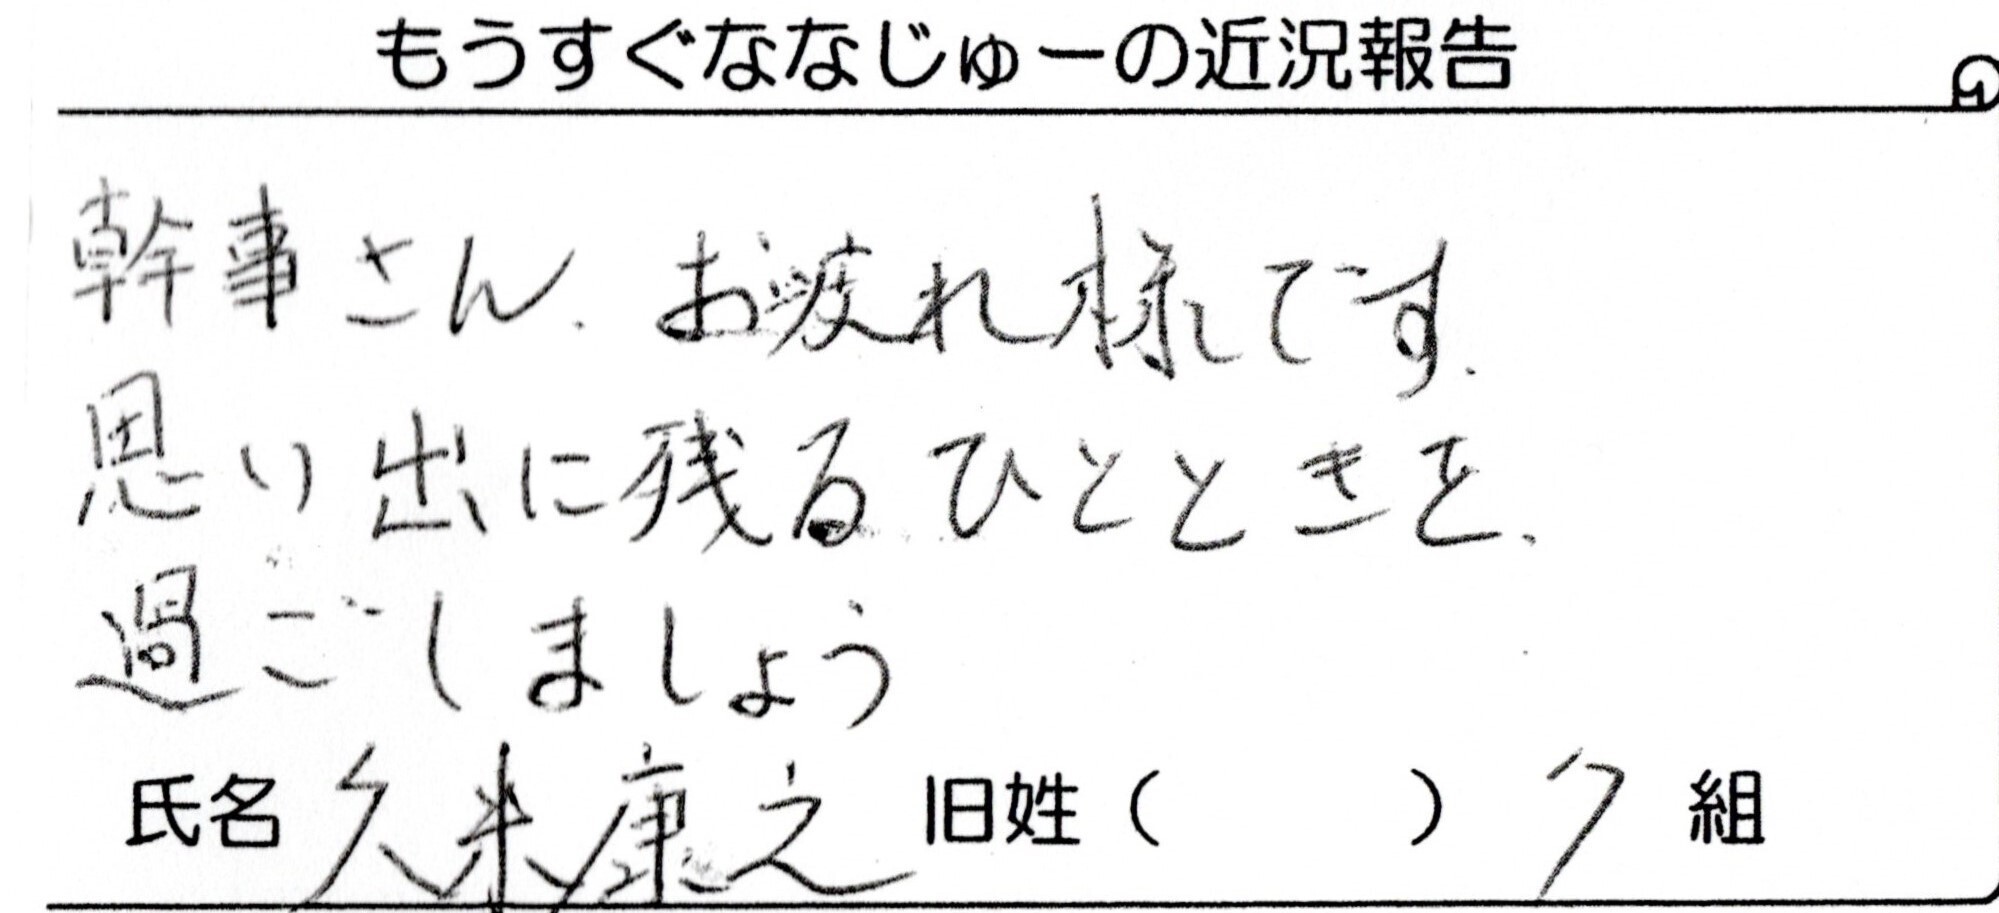 もうすぐななじゅーの近況報告
幹事さん、お疲れ様です。
思い出に残るひとときを、
過ごしましょう
氏名 久米康之 旧姓（ ） 7 組